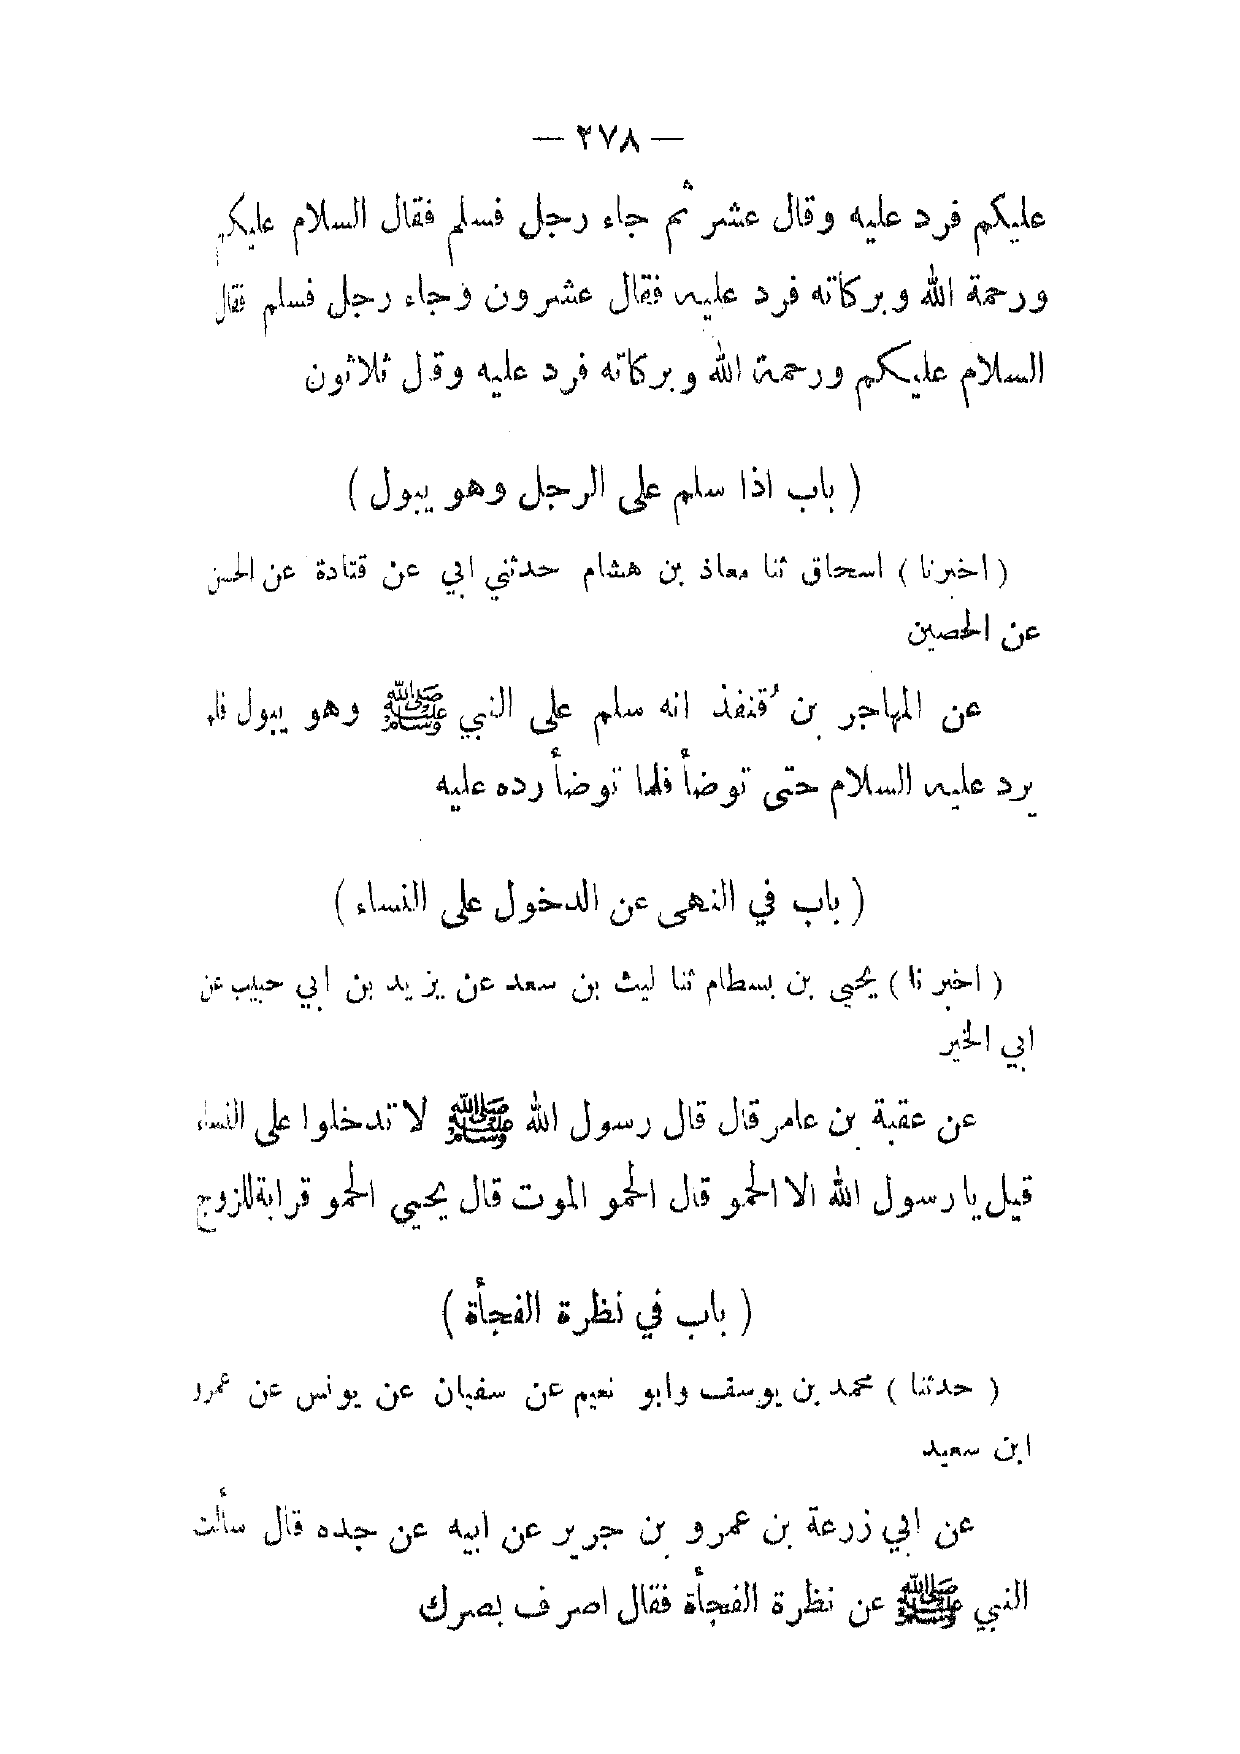 — ٢٧٨ —
عليكم فرد عليه وقال عشر ثم جاء رجل فسلم فقال السلام عليكم
ورحمة الله وبركاته فرد عليه فقال عشرون وجاء رجل فسلم فقال
السلام عليكم ورحمة الله وبركاته فرد عليه وقل ثلاثون
( باب اذا سلم على الرجل وهو يبول )
( اخبرنا ) اسحاق ثنا معاذ بن هشام حدثني ابي عن قتادة عن الحسن
عن الحصين
عن المهاجر بن قُنفذ انه سلم على النبي ﷺ وهو يبول فلم
يرد عليه السلام حتى توضأ فلما توضأ رده عليه
( باب في النهى عن الدخول على النساء )
( اخبرنا ) يحيى بن بسطام ثنا ليث بن سعد عن يزيد بن ابي حبيب عن
ابي الخير
عن عقبة بن عامر قال قال رسول الله ﷺ لا تدخلوا على النساء
قيل يا رسول الله الا الحمو قال الحمو الموت قال يحيى الحمو قرابة للزوج
( باب في نظرة الفجأة )
( حدثنا ) محمد بن يوسف وابو نعيم عن سفيان عن يونس عن عمرو
ابن سعيد
عن ابي زرعة بن عمرو بن جرير عن ابيه عن جده قال سألت
النبي ﷺ عن نظرة الفجأة فقال اصرف بصرك